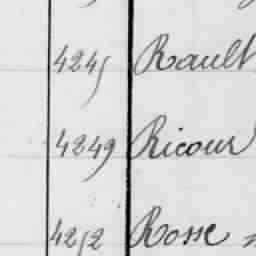 4245 Rault
4249 Ricour
4252 Rosse